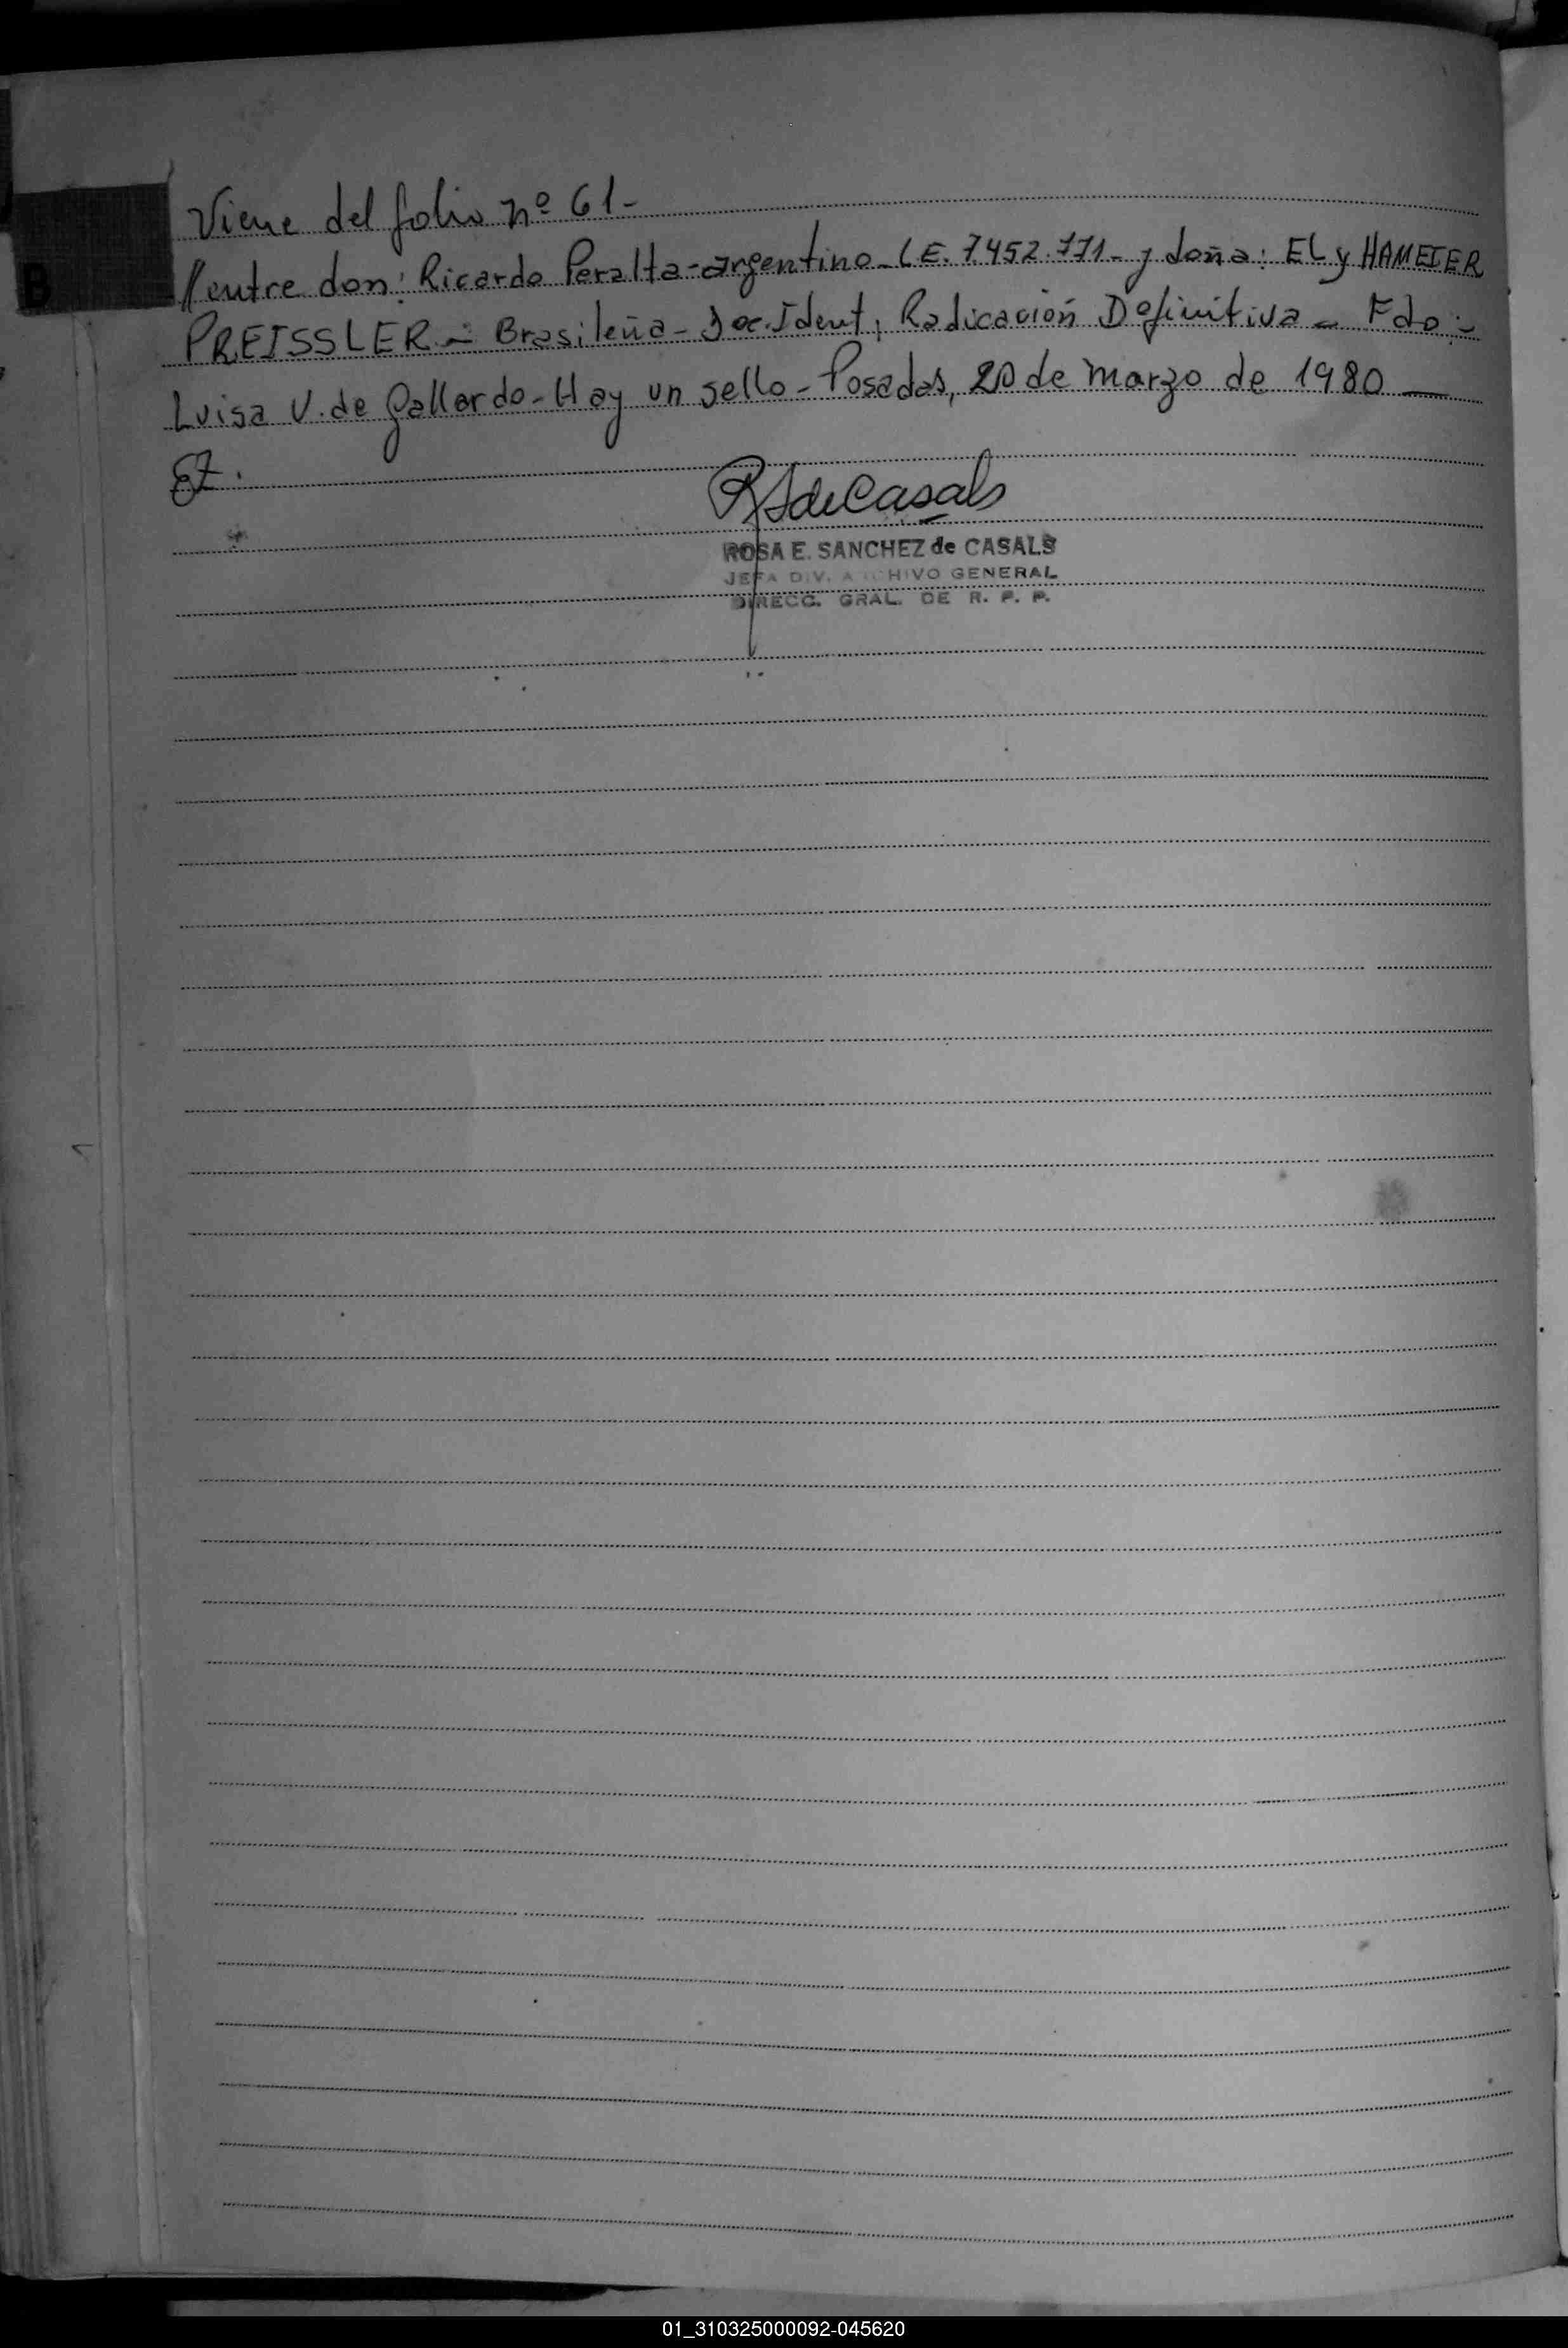 B
Viene del folio nº 61-
// entre don: Ricardo Peralta-argentino- L.E. 7.452.771- y doña: ELY HAMEIER
PREISSLER - Brasileña - Doc. Ident, Radicación Definitiva - Fdo:-
Luisa V. de Gallardo - Hay un sello - Posadas, 20 de Marzo de 1980 —
RS de Casals
ROSA E. SANCHEZ de CASALS
JEFA DIV. ARCHIVO GENERAL
DIRECC. GRAL. DE R. P. P.
01_310325000092-045620